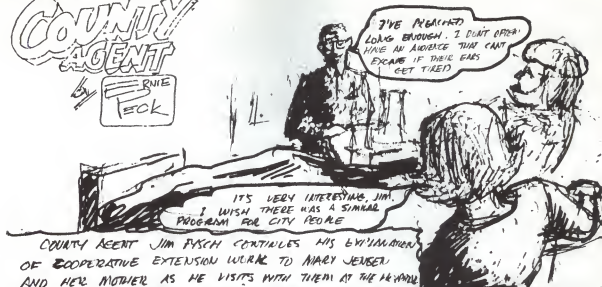 COUNTY
AGENT
by ERNIE
PECK
I'VE PREACHED
LONG ENOUGH. I DON'T OFTEN
HAVE AN AUDIENCE THAT CAN'T
ESCAPE IF THEIR EARS
GET TIRED
IT'S VERY INTERESTING, JIM.
I WISH THERE WAS A SIMILAR
PROGRAM FOR CITY PEOPLE
COUNTY AGENT JIM CONTINUES HIS EXPLANATION
OF COOPERATIVE EXTENSION WORK TO MARY JENSEN
AND HER MOTHER AS HE VISITS WITH THEM AT THE HOSPITAL